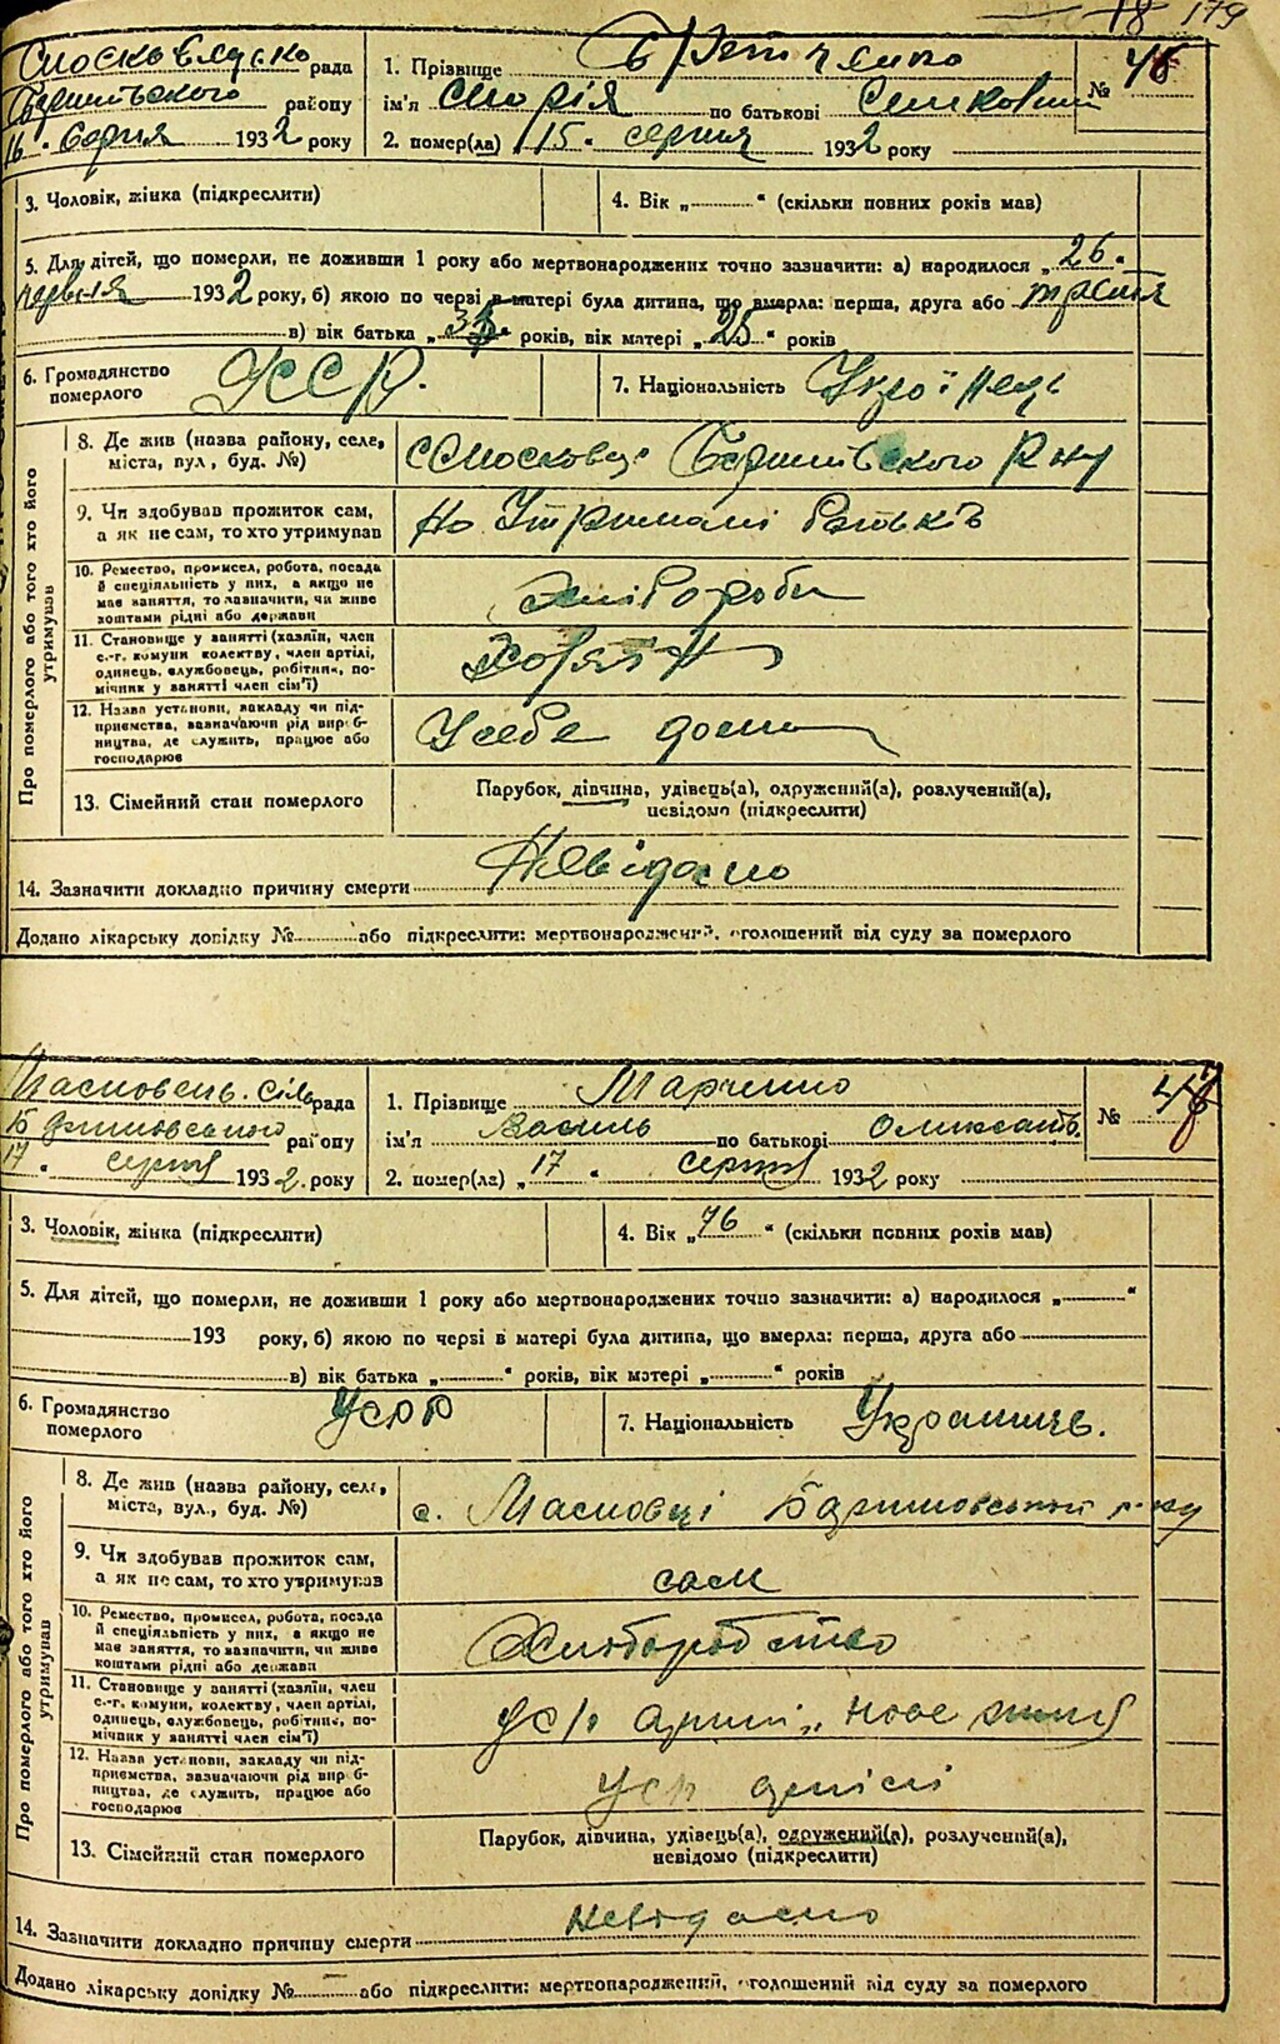 179
рада
району
16 " серпня 1932 року
1. Прізвище
ім'я Марія по батькові
2. помер(ла) „ 15 " серпня 1932 року
№
3. Чоловік, жінка (підкреслити)
4. Вік „ " (скільки повних років мав)
5. Для дітей, що померли, не доживши 1 року або мертвонароджених точно зазначити: а) народилося „ 26 "
червня 1932 року, б) якою по черзі в матері була дитина, що вмерла: перша, друга або третя
в) вік батька „ " років, вік матері „ 25 " років
6. Громадянство
померлого
УССР.
7. Національність
Про померлого або того хто його
утримував
8. Де жив (назва району, села,
міста, вул., буд. №)
9. Чи здобував прожиток сам,
а як не сам, то хто утримував
10. Ремество, промисел, робота, посада
й спеціяльність у них, а якщо не
має заняття, то зазначити, чи живе
коштами рідні або держави
11. Становище у занятті (хазяїн, член
с.-г. комуни колективу, член артілі,
одинець, службовець, робітник, по-
мічник у занятті член сім'ї)
12. Назва установи, закладу чи під-
приємства, зазначаючи рід вироб-
ництва, де служить, працює або
господарює
У себе дома
13. Сімейний стан померлого
Парубок, дівчина, удівець(а), одружений(а), розлучений(а),
невідомо (підкреслити)
14. Зазначити докладно причину смерти Невідомо
Додано лікарську довідку № або підкреслити: мертвонароджений, оголошений від суду за померлого
рада
району
17 " серпня 1932 року
1. Прізвище Марченко
ім'я Василь по батькові Олександ.
2. помер(ла) „ 17 " серпня 1932 року
№
3. Чоловік, жінка (підкреслити)
4. Вік „ 76 " (скільки повних років мав)
5. Для дітей, що померли, не доживши 1 року або мертвонароджених точно зазначити: а) народилося „ "
193 року, б) якою по черзі в матері була дитина, що вмерла: перша, друга або
в) вік батька „ " років, вік матері „ " років
6. Громадянство
померлого
УСРР
7. Національність
Про померлого або того хто його
утримував
8. Де жив (назва району, села,
міста, вул., буд. №)
с. Масківці
9. Чи здобував прожиток сам,
а як не сам, то хто утримував
сам
10. Ремество, промисел, робота, посада
й спеціяльність у них, а якщо не
має заняття, то зазначити, чи живе
коштами рідні або держави
Хліборобство
11. Становище у занятті (хазяїн, член
с.-г. комуни, колективу, член артілі,
одинець, службовець, робітник, по-
мічник у занятті член сім'ї)
12. Назва установи, закладу чи під-
приємства, зазначаючи рід вироб-
ництва, де служить, працює або
господарює
13. Сімейний стан померлого
Парубок, дівчина, удівець(а), одружений(а), розлучений(а),
невідомо (підкреслити)
14. Зазначити докладно причину смерти невідомо
Додано лікарську довідку № або підкреслити: мертвонароджений, оголошений від суду за померлого